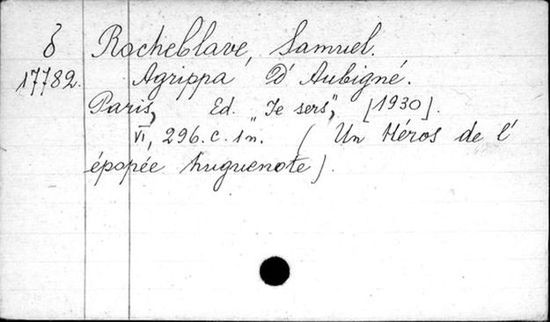 δ Rocheblave, Samuel.
17782. Agrippa D'Aubigné.
Paris, Ed. „Je sers", [1930].
VI, 296.c. 1n. (Un Héros de l'
épopée huguenote).